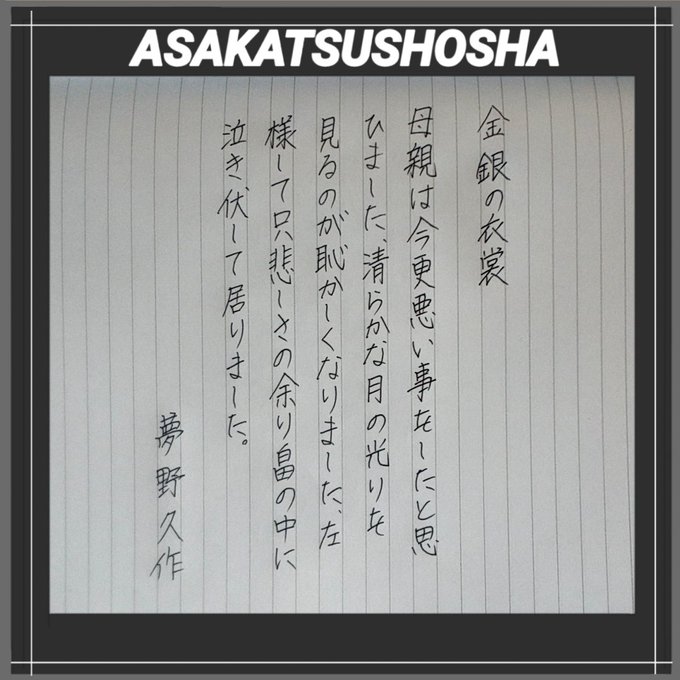 ASAKATSUSHOSHA
金銀の衣裳
母親は今更悪い事をしたと思
ひました、清らかな月の光りを
見るのが恥かしくなりました、左
様して只悲しさの余り畠の中に
泣き伏して居りました。
夢野久作